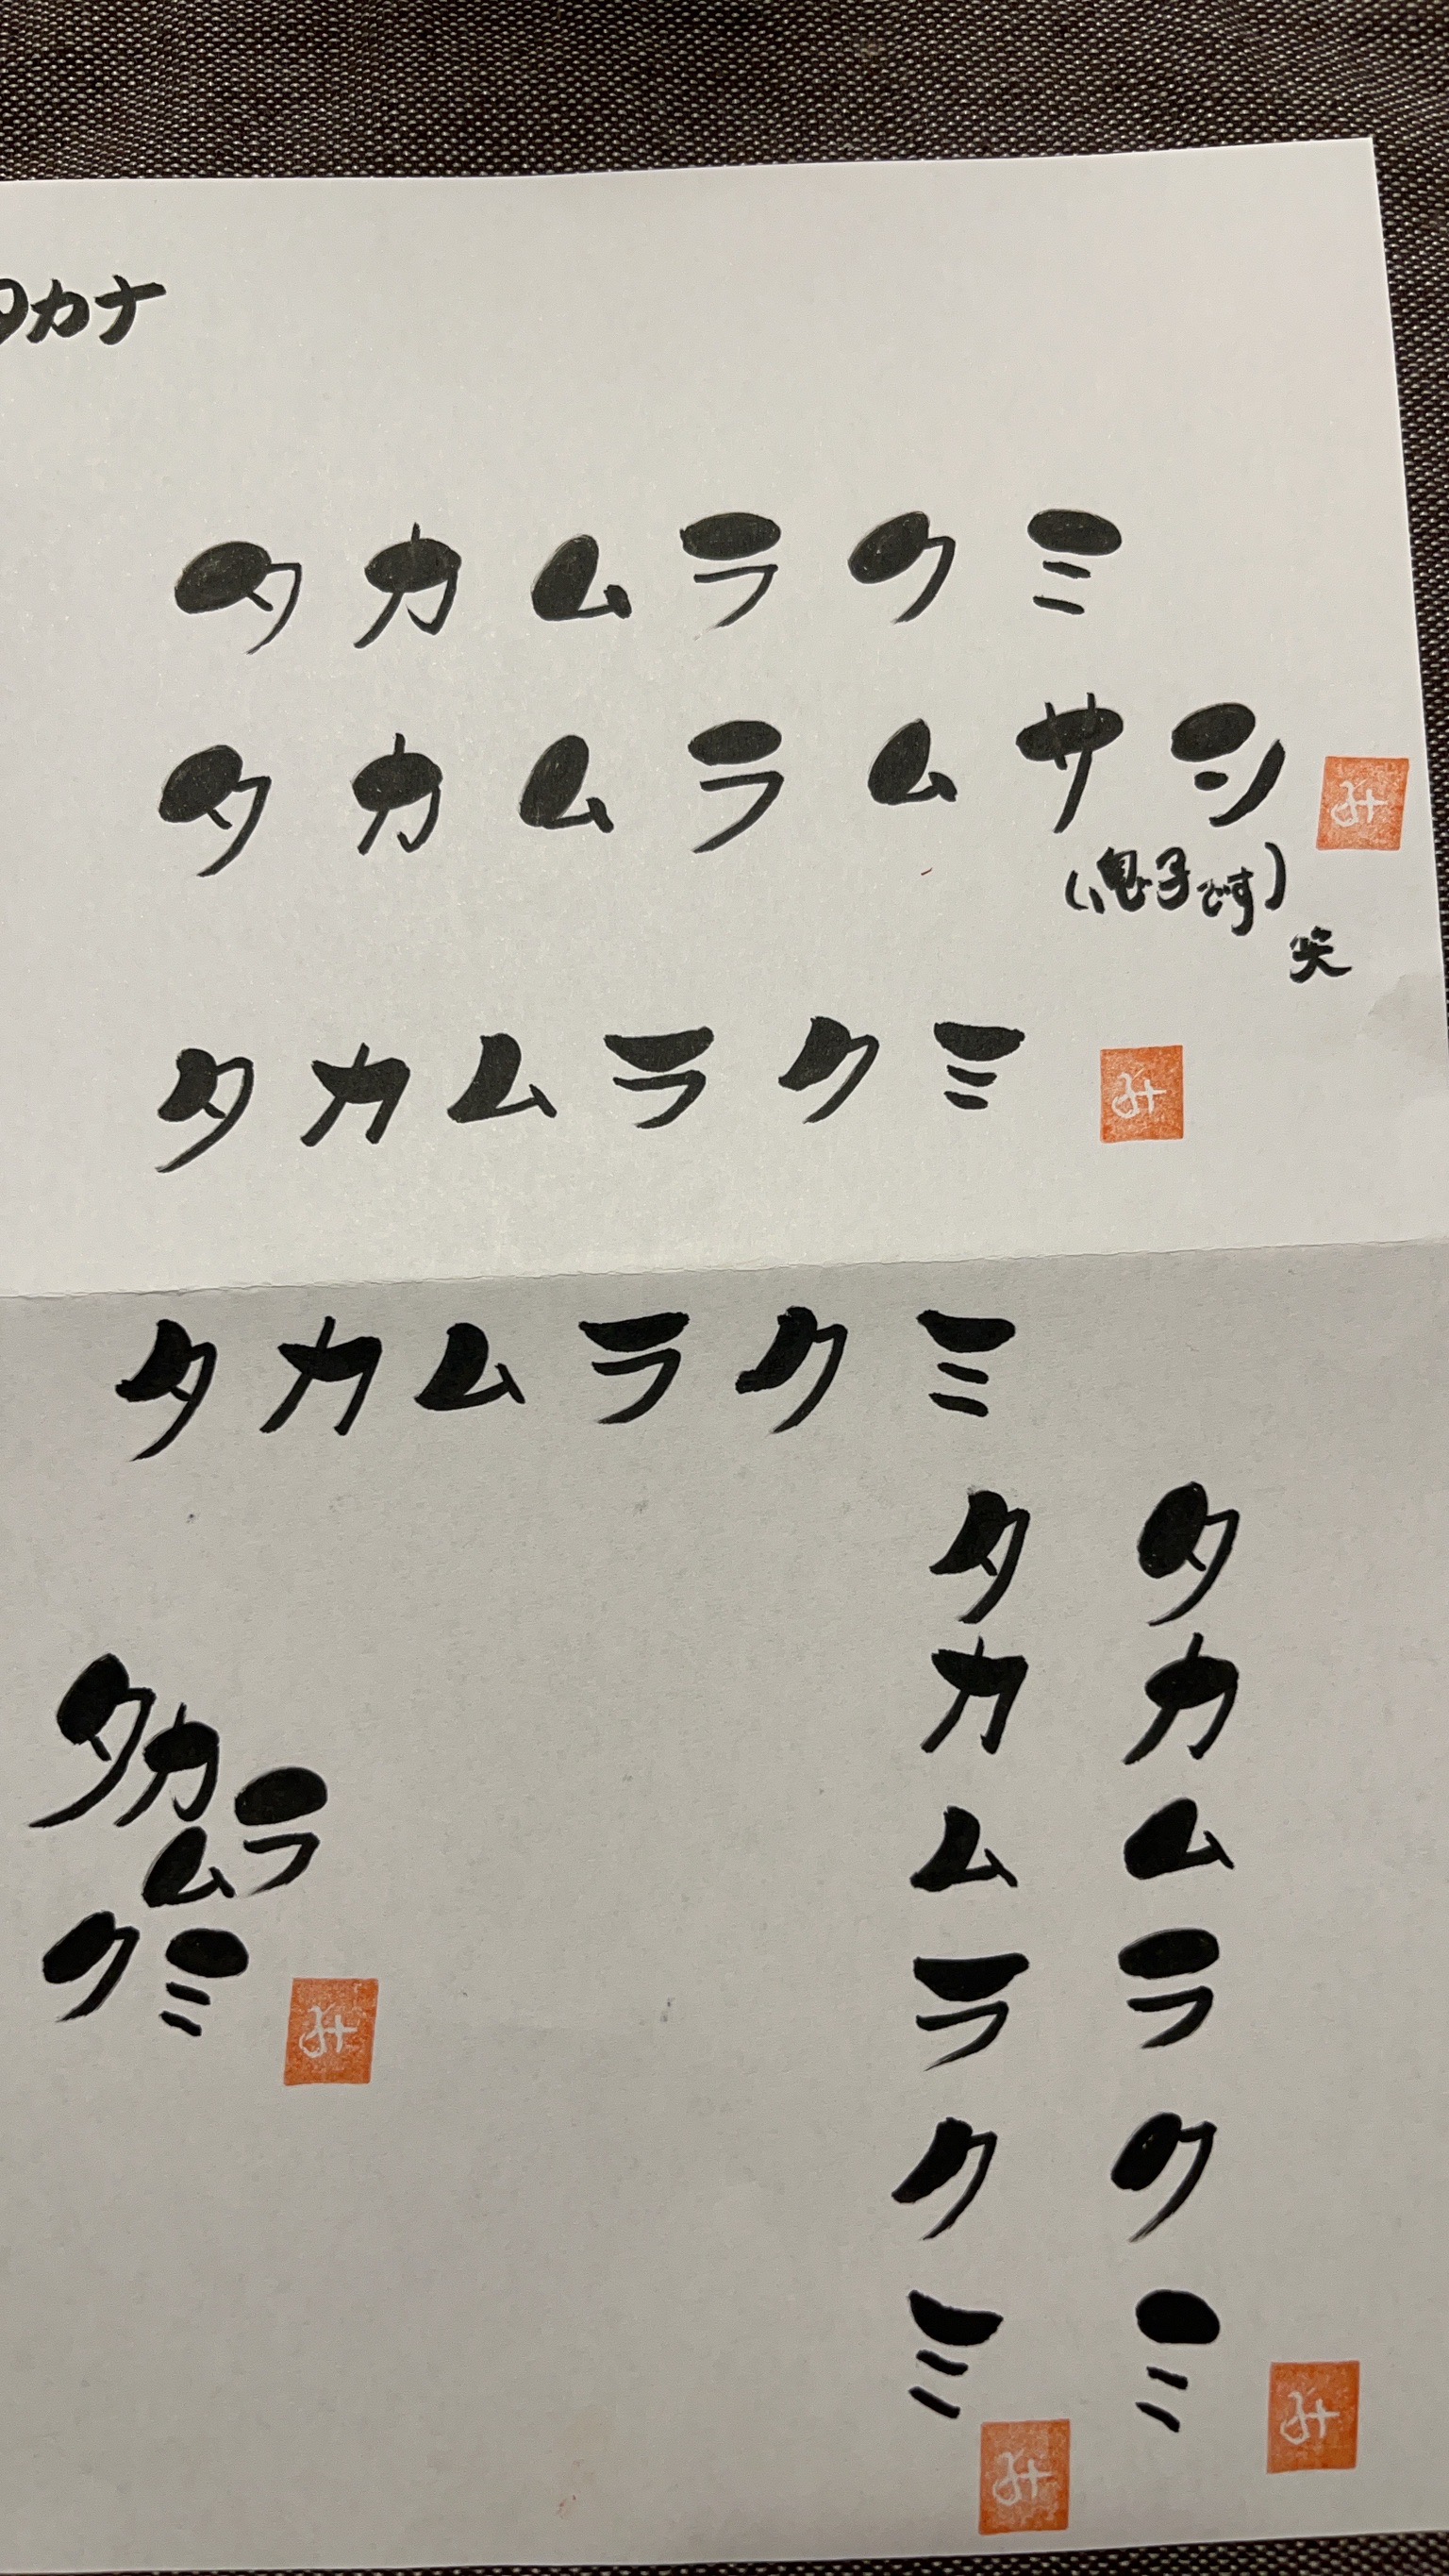 タカナ
タカムラクミ
タカムラムサシ
み
(息子です)
笑
タカムラクミ
み
タカムラクミ
タカムラクミ
み
タカムラクミ
み
タカ
ムラ
クミ
み